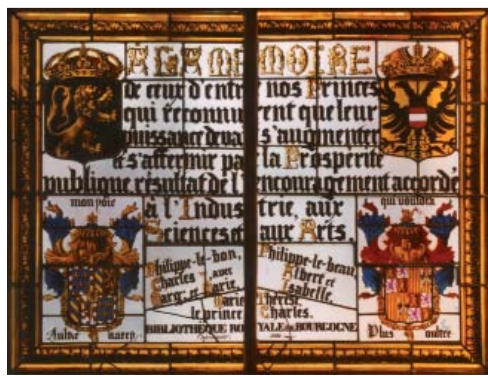 A LA MÉMOIRE
de ceux d'entre nos Princes
qui reconnurent que leur
puissance devait s'augmenter
et s'affermir par la Prospérité
publique, résultat de l'encouragement accordé
à l'Industrie, aux
Sciences et aux Arts.
mon joie
qui vouldra
Philippe-le-bon,
Charles I, avec
Marg: et Marie,
Marie
le prince
Philippe-le-beau,
Albert et
Isabelle,
Thérèse
Charles.
BIBLIOTHÈQUE ROYALE de BOURGOGNE
Aultre naeray
Plus oultre